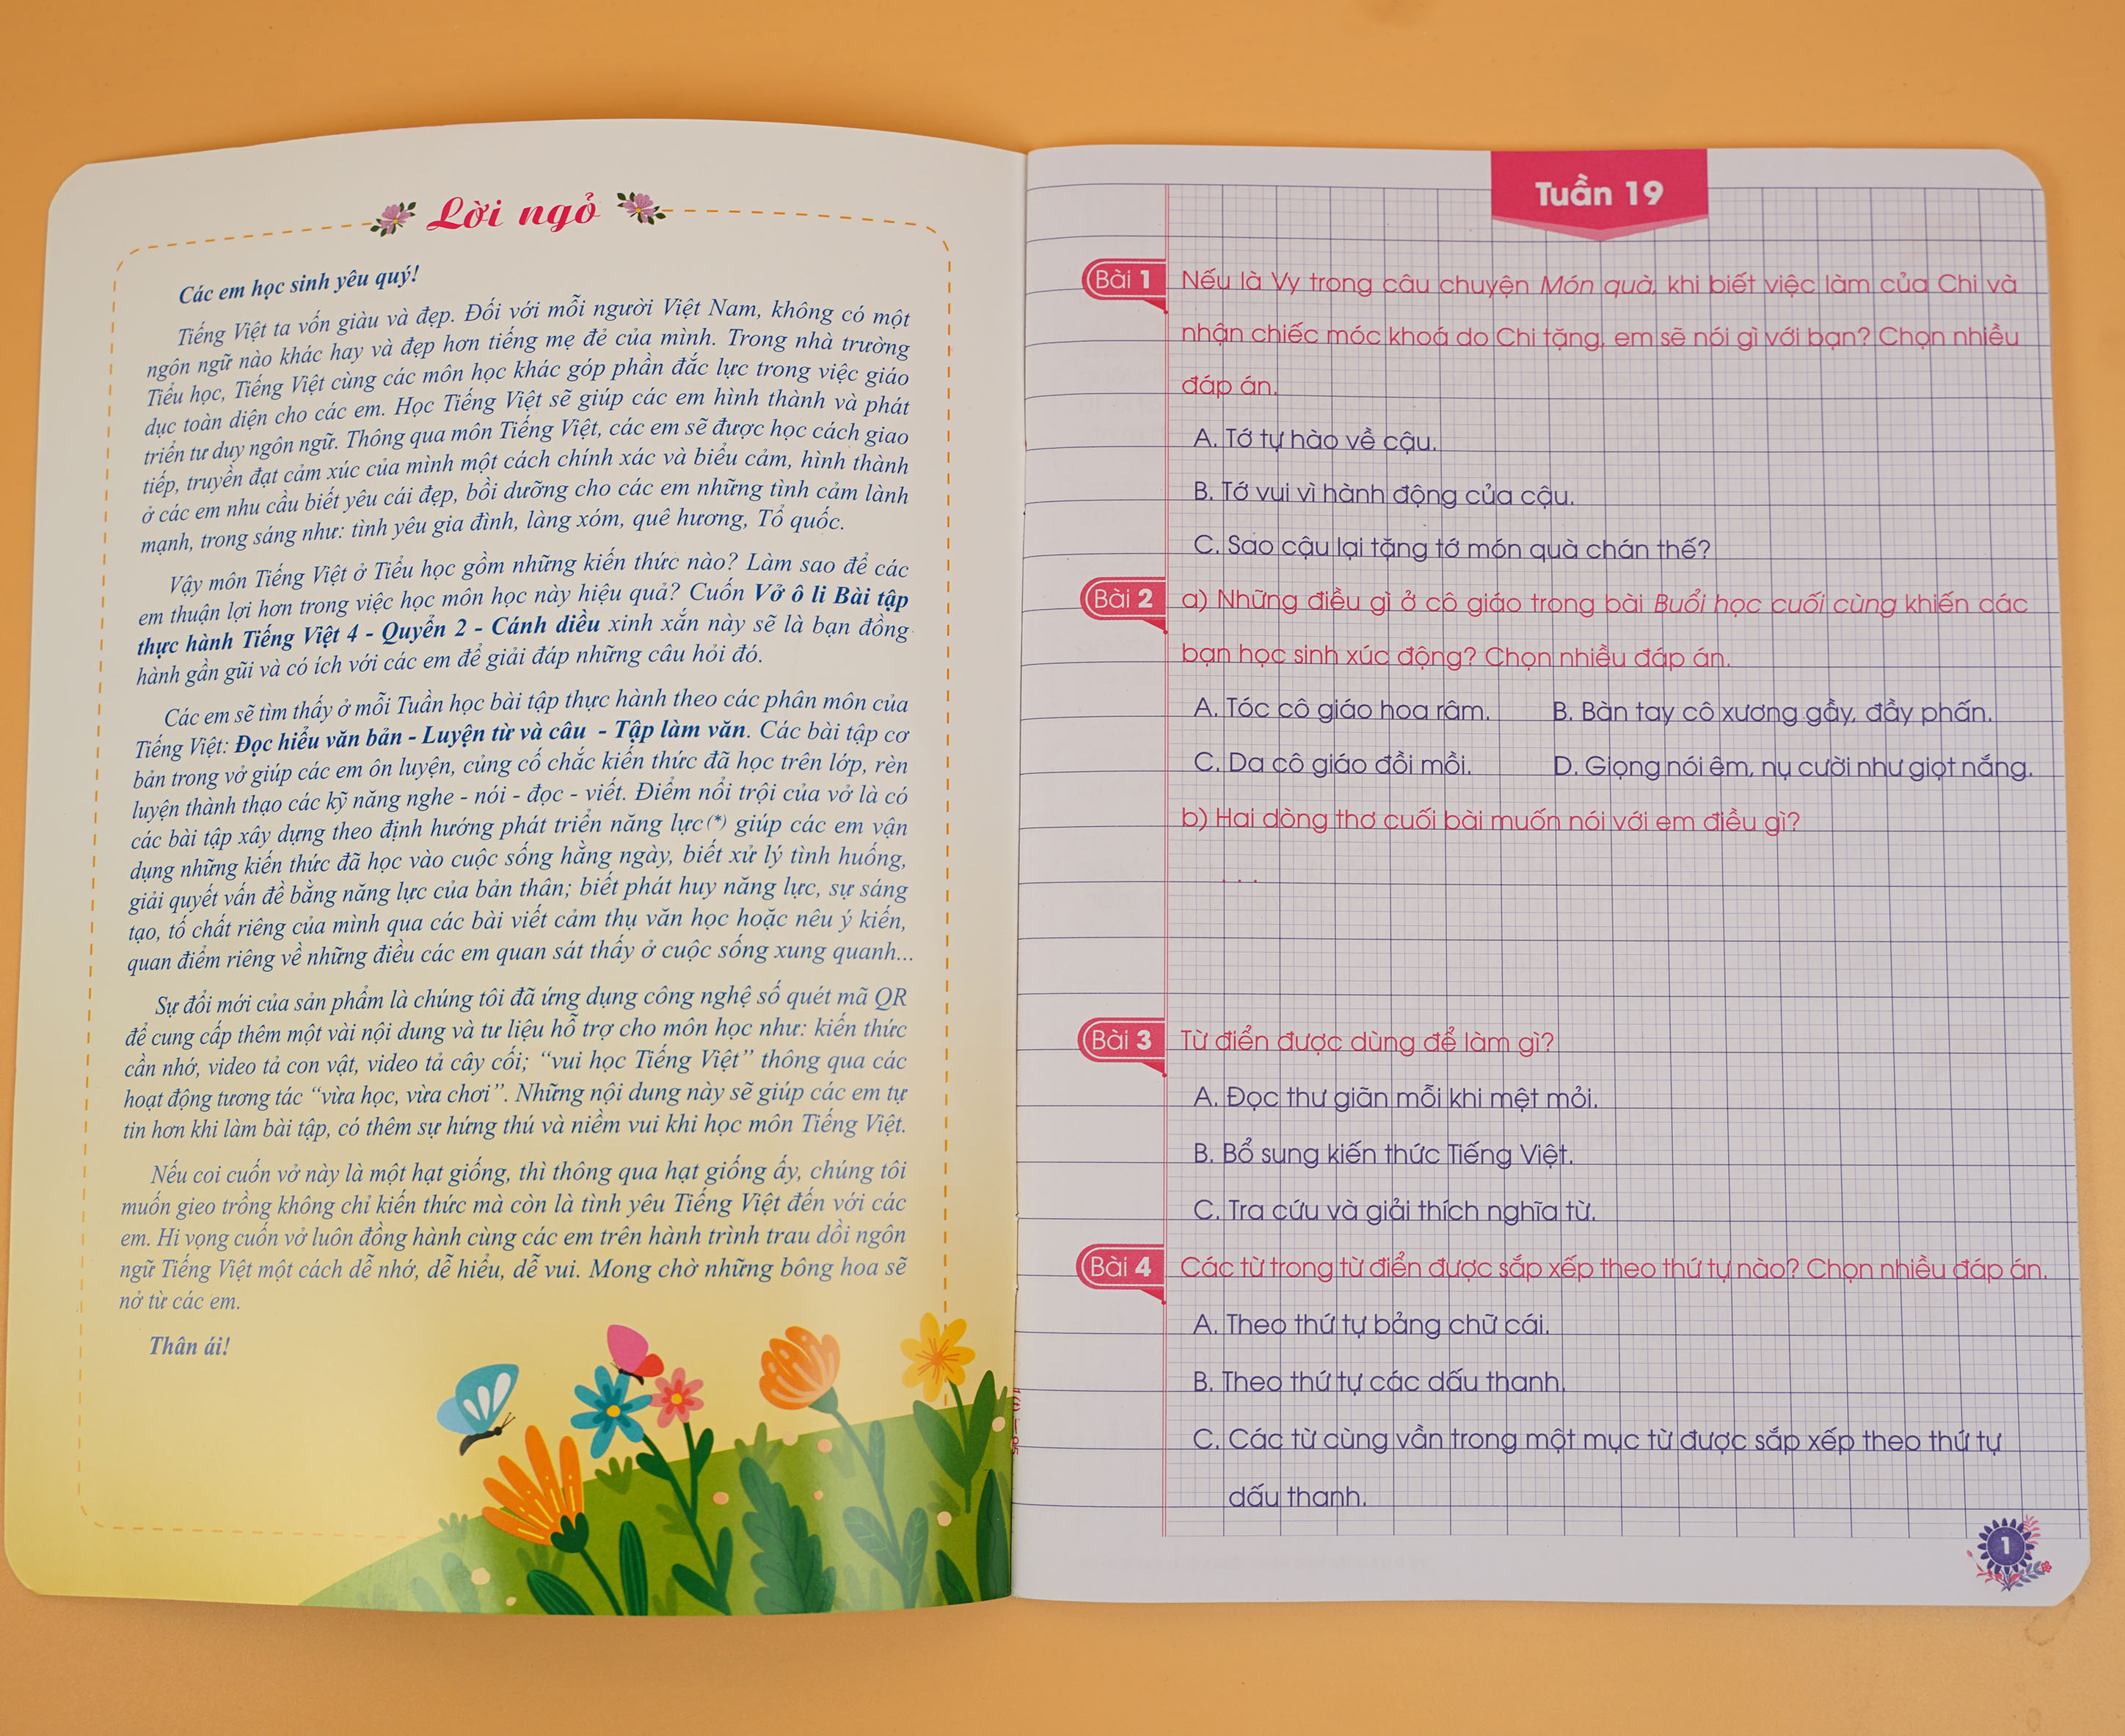 Lời ngỏ
Các em học sinh yêu quý!
Tiếng Việt ta vốn giàu và đẹp. Đối với mỗi người Việt Nam, không có một
ngôn ngữ nào khác hay và đẹp hơn tiếng mẹ đẻ của mình. Trong nhà trường
Tiểu học, Tiếng Việt cùng các môn học khác góp phần đắc lực trong việc giáo
dục toàn diện cho các em. Học Tiếng Việt sẽ giúp các em hình thành và phát
triển tư duy ngôn ngữ. Thông qua môn Tiếng Việt, các em sẽ được học cách giao
tiếp, truyền đạt cảm xúc của mình một cách chính xác và biểu cảm, hình thành
ở các em nhu cầu biết yêu cái đẹp, bồi dưỡng cho các em những tình cảm lành
mạnh, trong sáng như: tình yêu gia đình, làng xóm, quê hương, Tổ quốc.
Vậy môn Tiếng Việt ở Tiểu học gồm những kiến thức nào? Làm sao để các
em thuận lợi hơn trong việc học môn học này hiệu quả? Cuốn Vở ô li Bài tập
thực hành Tiếng Việt 4 - Quyển 2 - Cánh diều xinh xắn này sẽ là bạn đồng
hành gần gũi và có ích với các em để giải đáp những câu hỏi đó.
Các em sẽ tìm thấy ở mỗi Tuần học bài tập thực hành theo các phân môn của
Tiếng Việt: Đọc hiểu văn bản - Luyện từ và câu - Tập làm văn. Các bài tập cơ
bản trong vở giúp các em ôn luyện, củng cố chắc kiến thức đã học trên lớp, rèn
luyện thành thạo các kỹ năng nghe - nói - đọc - viết. Điểm nổi trội của vở là có
các bài tập xây dựng theo định hướng phát triển năng lực(*) giúp các em vận
dụng những kiến thức đã học vào cuộc sống hằng ngày, biết xử lý tình huống,
giải quyết vấn đề bằng năng lực của bản thân; biết phát huy năng lực, sự sáng
tạo, tố chất riêng của mình qua các bài viết cảm thụ văn học hoặc nêu ý kiến,
quan điểm riêng về những điều các em quan sát thấy ở cuộc sống xung quanh...
Sự đổi mới của sản phẩm là chúng tôi đã ứng dụng công nghệ số quét mã QR
để cung cấp thêm một vài nội dung và tư liệu hỗ trợ cho môn học như: kiến thức
cần nhớ, video tả con vật, video tả cây cối; “vui học Tiếng Việt” thông qua các
hoạt động tương tác “vừa học, vừa chơi”. Những nội dung này sẽ giúp các em tự
tin hơn khi làm bài tập, có thêm sự hứng thú và niềm vui khi học môn Tiếng Việt.
Nếu coi cuốn vở này là một hạt giống, thì thông qua hạt giống ấy, chúng tôi
muốn gieo trồng không chỉ kiến thức mà còn là tình yêu Tiếng Việt đến với các
em. Hi vọng cuốn vở luôn đồng hành cùng các em trên hành trình trau dồi ngôn
ngữ Tiếng Việt một cách dễ nhớ, dễ hiểu, dễ vui. Mong chờ những bông hoa sẽ
nở từ các em.
Thân ái!
Tuần 19
Bài 1 Nếu là Vy trong câu chuyện Món quà, khi biết việc làm của Chi và
nhận chiếc móc khoá do Chi tặng, em sẽ nói gì với bạn? Chọn nhiều
đáp án.
A. Tớ tự hào về cậu.
B. Tớ vui vì hành động của cậu.
C. Sao cậu lại tặng tớ món quà chán thế?
Bài 2 a) Những điều gì ở cô giáo trong bài Buổi học cuối cùng khiến các
bạn học sinh xúc động? Chọn nhiều đáp án.
A. Tóc cô giáo hoa râm. B. Bàn tay cô xương gầy, đầy phấn.
C. Da cô giáo đồi mồi. D. Giọng nói êm, nụ cười như giọt nắng.
b) Hai dòng thơ cuối bài muốn nói với em điều gì?
...
Bài 3 Từ điển được dùng để làm gì?
A. Đọc thư giãn mỗi khi mệt mỏi.
B. Bổ sung kiến thức Tiếng Việt.
C. Tra cứu và giải thích nghĩa từ.
Bài 4 Các từ trong từ điển được sắp xếp theo thứ tự nào? Chọn nhiều đáp án.
A. Theo thứ tự bảng chữ cái.
B. Theo thứ tự các dấu thanh.
C. Các từ cùng vần trong một mục từ được sắp xếp theo thứ tự
dấu thanh.
1